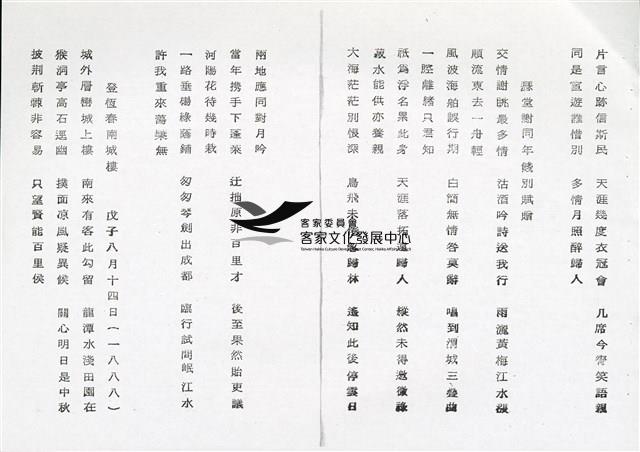 片言心跡信斯民　天涯幾度衣冠會　几席今宵笑語親
同是宦遊難惜別　多情月照醉歸人
謝同年餞別賦贈
交情謝眺最多情　沽酒吟詩送我行　雨濺黃梅江水
順流東去一舟輕
風波海舶誤行期　白簡無情咎莫辭　唱到渭城三疊曲
一腔離緒只君知
祇為浮名累此身　天涯落拓歸人　縱然未得邀微祿
菽水能供亦養親
大海茫茫別恨深　鳥飛未歸林　遙知此後停雲日
兩地應同對月吟
當年携手下蓬萊　迂拙原非百里才　後至果然貽更議
河陽花待幾時栽
一路垂楊綠蔭鋪　匆匆琴劍出成都　臨行試問岷江水
許我重來蕩槳無
登恆春南城樓　戊子八月十四日(一八八八)
城外層巒城上樓　南來有客此勾留　龍潭水淺田園在
猴洞亭高石逕幽　撲面凉風疑異候　關心明日是中秋
披荆斬棘非容易　只望賢能百里侯
客家委員會
客家文化發展中心
Taiwan Hakka Culture Development Center, Hakka Affairs Council